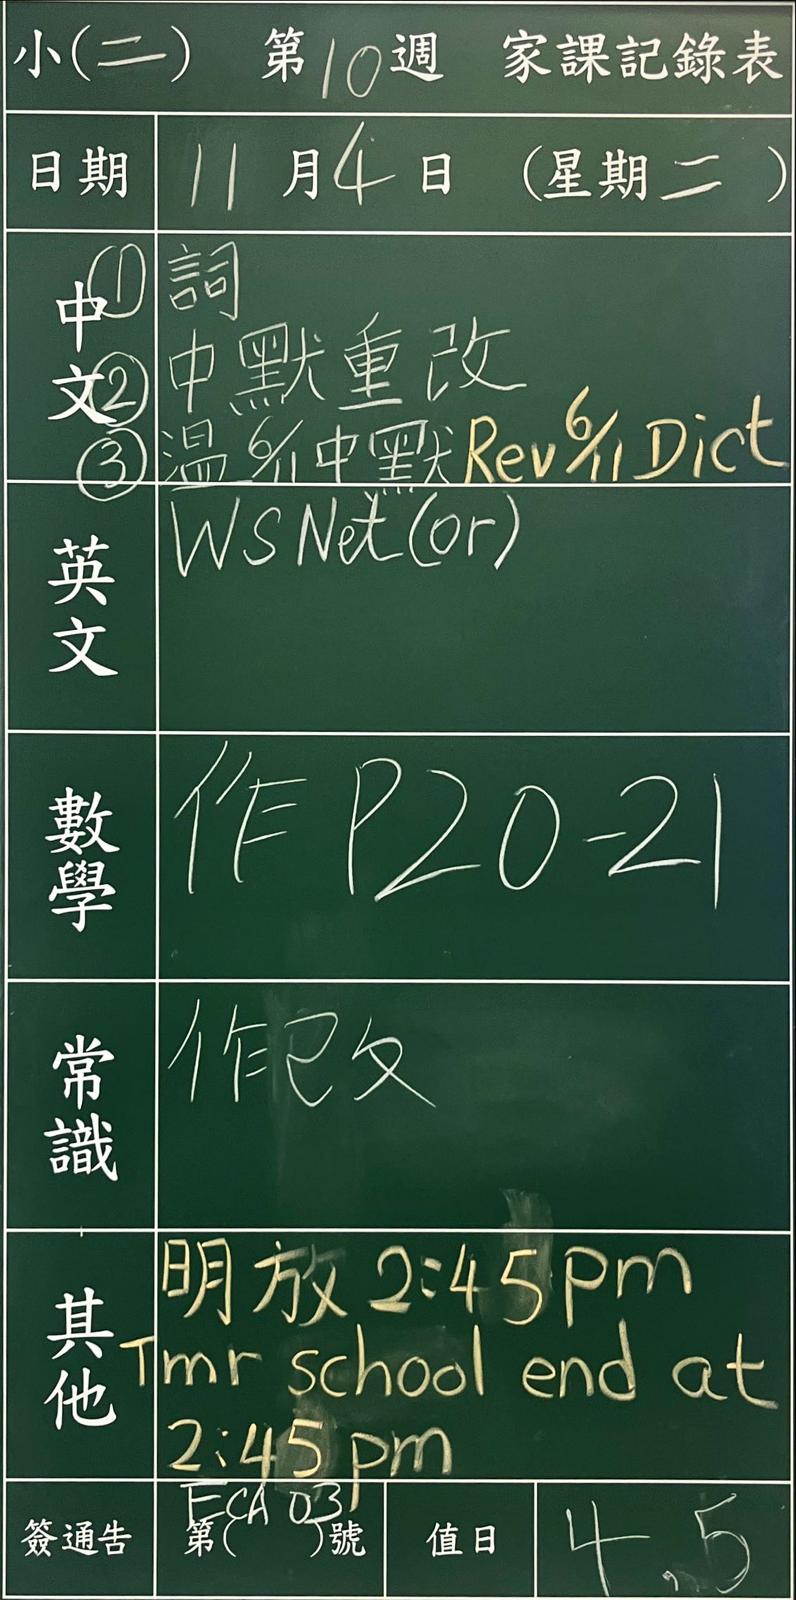 小(二) 第10週 家課記錄表
日期 11月4日 (星期二)
中文
①詞
②中默重改
③溫6/11中默 Rev 6/11 Dict
英文
WS Net(or)
數學
作 P20-21
常識
作改
其他
明放 2:45pm
Tmr school end at
2:45pm
簽通告 ECA 03 第( )號 值日 4,5